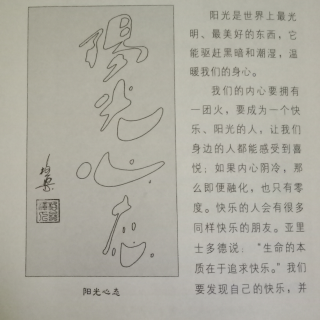 陽光心态
阳光心态
阳光是世界上最光
明、最美好的东西，它
能驱赶黑暗和潮湿，温
暖我们的身心。
我们的内心要拥有
一团火，要成为一个快
乐、阳光的人，让我们
身边的人都能感受到喜
悦；如果内心阴冷，那
么即便融化，也只有零
度。快乐的人会有很多
同样快乐的朋友。亚里
士多德说：“生命的本
质在于追求快乐。”我们
要发现自己的快乐，并